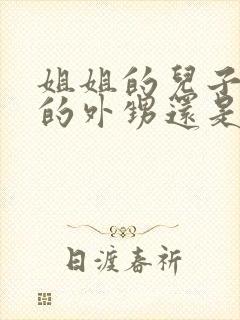 姐姐的兒子
的外甥還是
日渡春祈